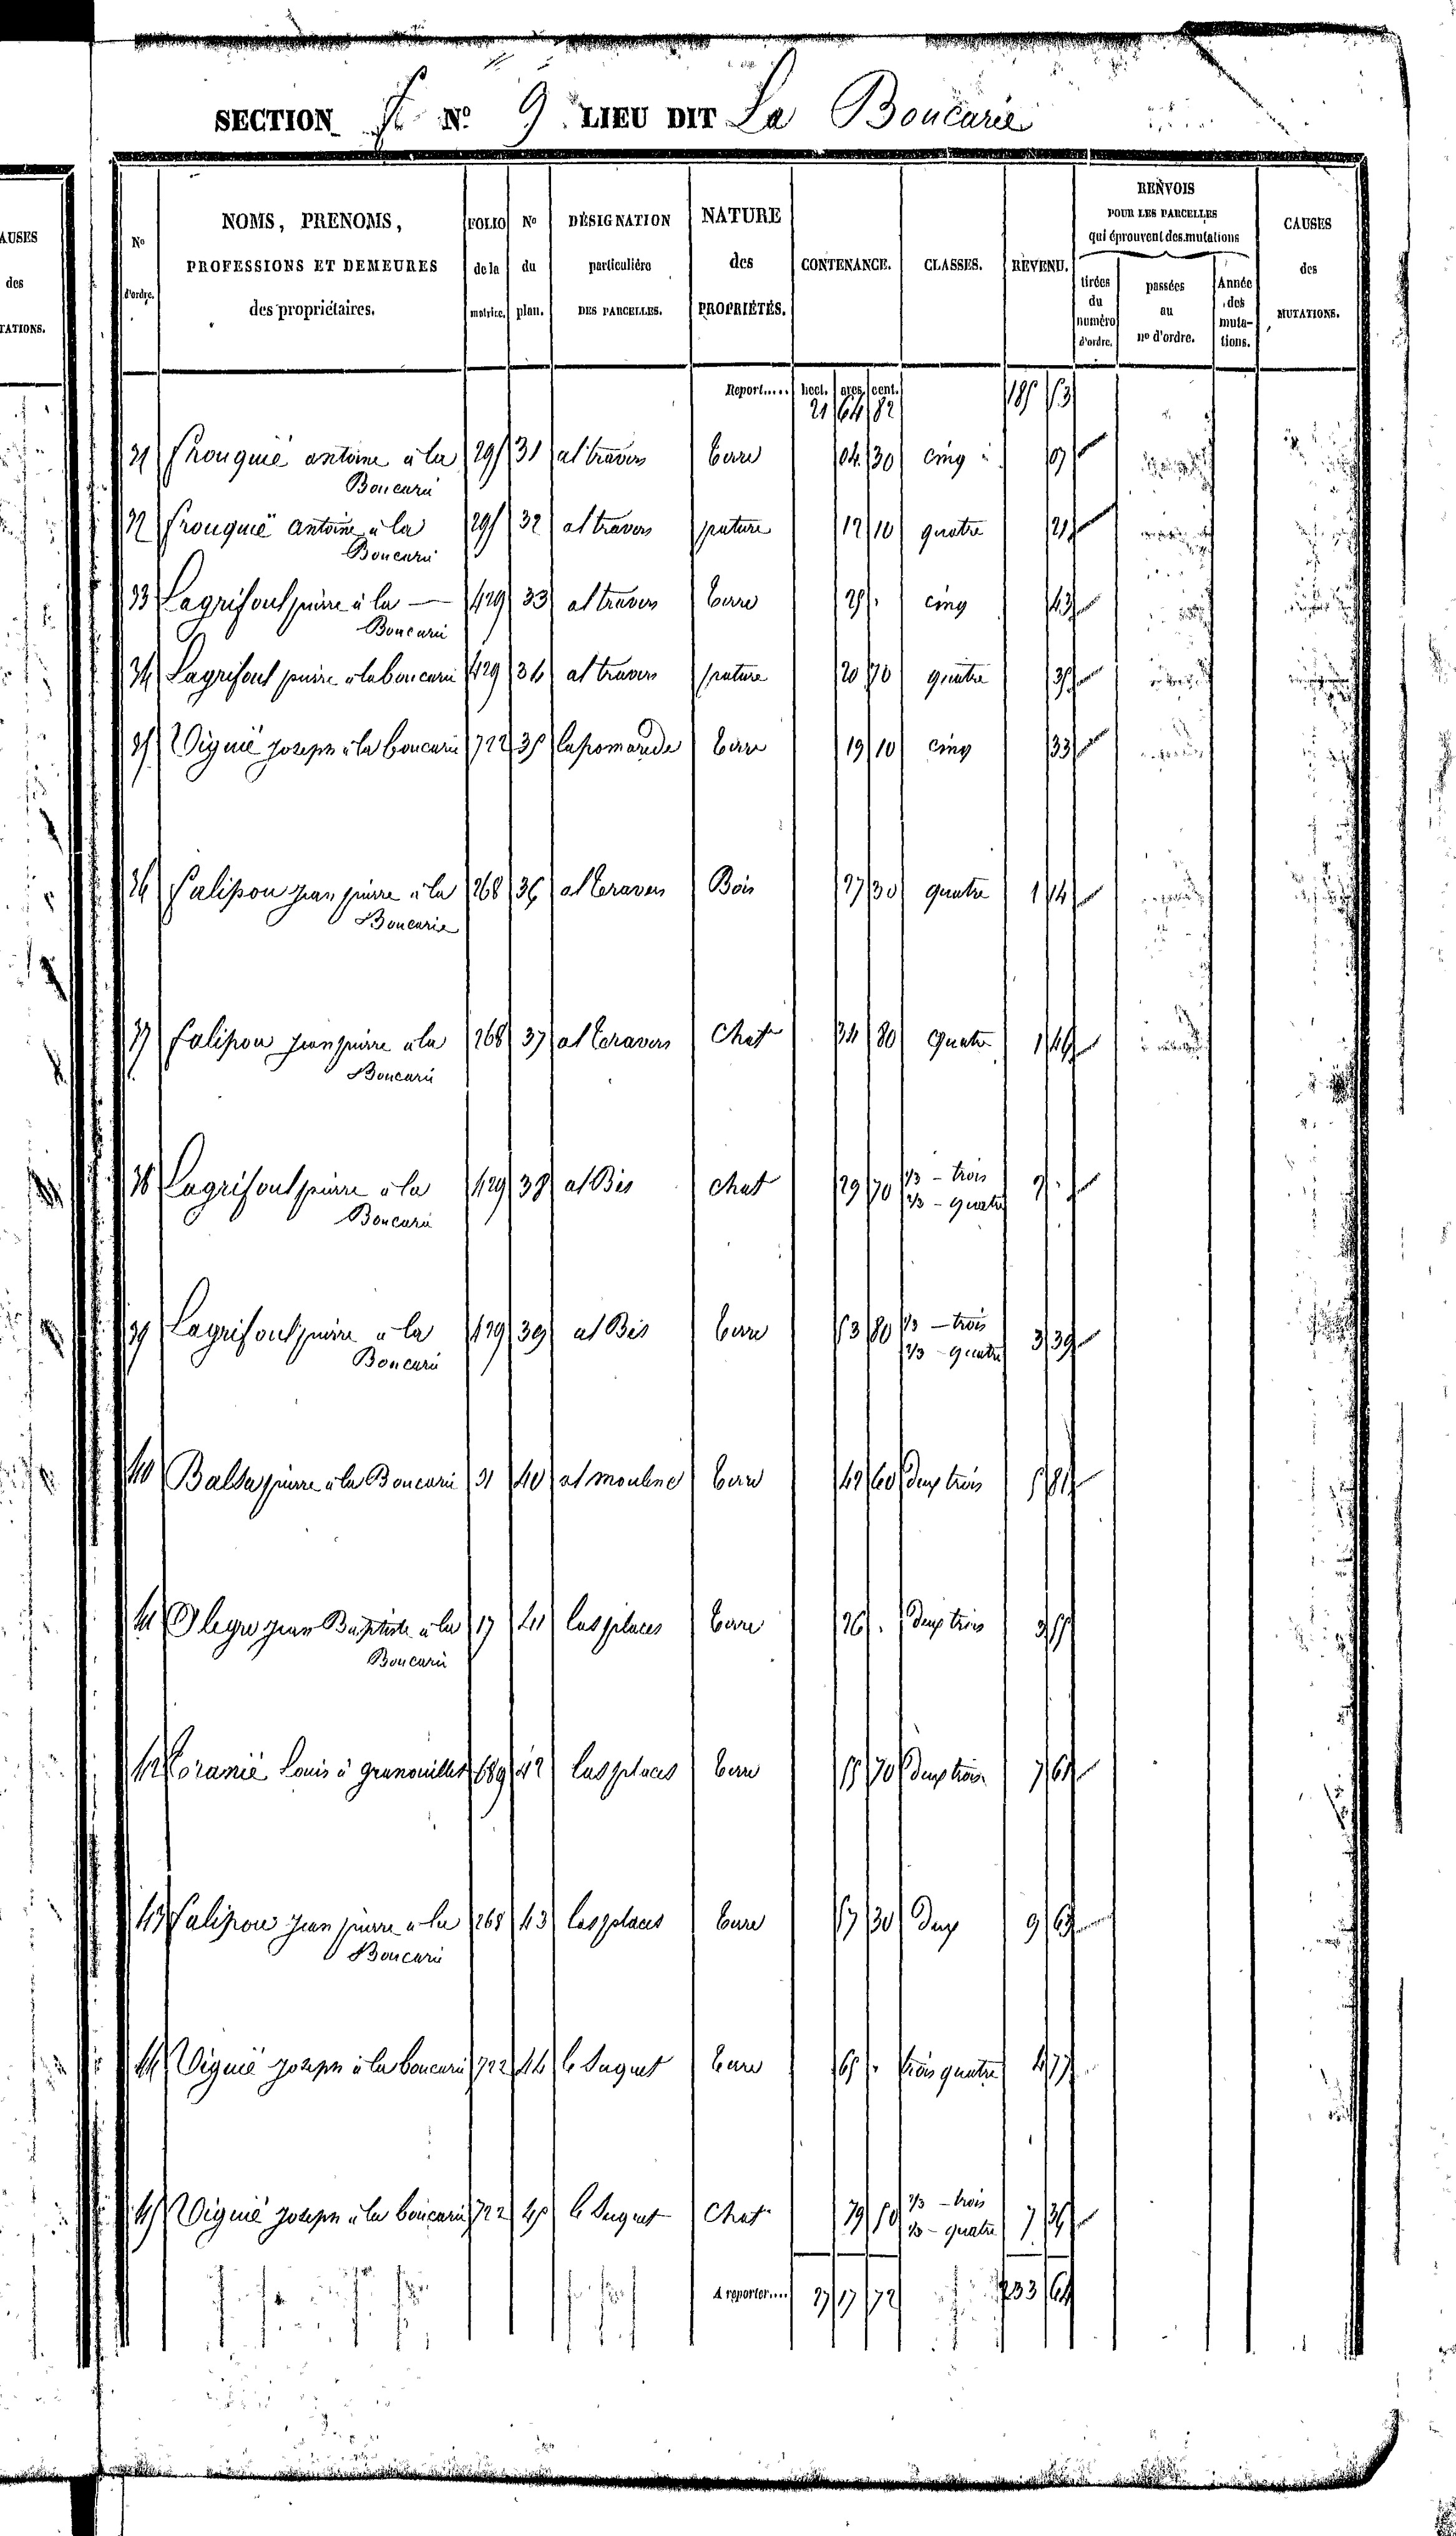 SECTION F Nº 9 LIEU DIT La Boucarie
AUSES
des
TATIONS.
Nº d'ordre.
NOMS, PRENOMS, PROFESSIONS ET DEMEURES des propriétaires.
FOLIO de la matrice.
Nº du plan.
DÉSIGNATION particulière DES PARCELLES.
NATURE des PROPRIÉTÉS.
CONTENANCE.
CLASSES.
REVENU.
RENVOIS POUR LES PARCELLES qui éprouvent des mutations
tirées du numéro d'ordre.
passées au nº d'ordre.
Année des mutations.
CAUSES des MUTATIONS.
Report..... hect. ares cent.
21 64 82 185 53
31 frouquié antoine à la 295 31 al travers terre 04 30 cinq 07
Boucarie
32 frouquié antoine à la 295 32 al travers pature 12 10 quatre 21
Boucarie
33 Lagrifoul pierre à la — 429 33 al travers terre 25 . cinq 43
Boucarie
34 Lagrifoul pierre à la boucarie 429 34 al travers pature 20 70 quatre 35
35 Viguié joseph à la boucarie 722 35 la pomarede terre 19 10 cinq 33
36 falipou jean pierre à la 268 36 al travers Bois 27 30 quatre 1 14
Boucarie
37 falipou jean pierre à la 268 37 al travers Chat 34 80 quatre 1 46
Boucarie
38 Lagrifoul pierre à la 429 38 al Bès chat 29 70 1/3 - trois
2/3 - quatre 2 .
Boucarie
39 Lagrifoul pierre à la 429 39 al Bès terre 53 80 1/3 - trois
2/3 - quatre 3 39
Boucarie
40 Balsa pierre à la Boucarie 31 40 al mouline terre 42 60 deux trois 5 81
41 Alegre jean Baptiste à la 17 41 las places terre 26 . deux trois 3 55
Boucarie
42 toramié Louis à granouillet 689 42 las places terre 55 70 deux trois 7 61
43 falipou jean pierre à la 268 43 las places terre 57 30 deux 9 63
Boucarie
44 Viguié joseph à la boucarie 722 44 le Suquet terre 65 . trois quatre 4 77
45 Viguié joseph à la boucarie 722 45 le Suquet Chat 79 50 2/3 - trois
1/3 - quatre 7 36
A reporter.... 27 17 72 233 64